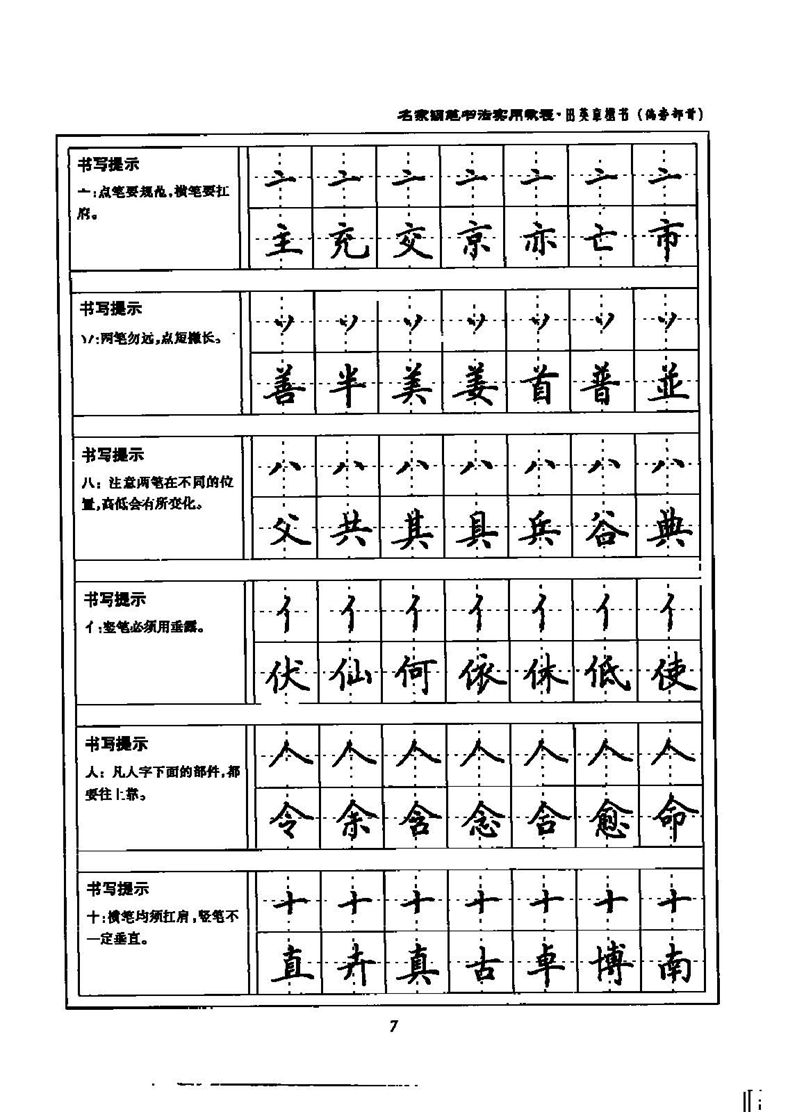 名家钢笔书法实用教程·田英章楷书（偏旁部首）
书写提示
亠:点笔要规范,横笔要扛
肩。
亠 亠 亠 亠 亠 亠 亠
主 充 交 京 亦 亡 市
书写提示
丷:两笔勿远,点短撇长。
丷 丷 丷 丷 丷 丷 丷
善 半 美 姜 首 普 並
书写提示
八：注意两笔在不同的位
置,高低会有所变化。
八 八 八 八 八 八 八
父 共 其 具 兵 谷 典
书写提示
亻:竖笔必须用垂露。
亻 亻 亻 亻 亻 亻 亻
伏 仙 何 依 休 低 使
书写提示
人：凡人字下面的部件,都
要往上靠。
人 人 人 人 人 人 人
令 余 含 念 舍 愈 命
书写提示
十:横笔均须扛肩,竖笔不
一定垂直。
十 十 十 十 十 十 十
直 卉 真 古 卓 博 南
7